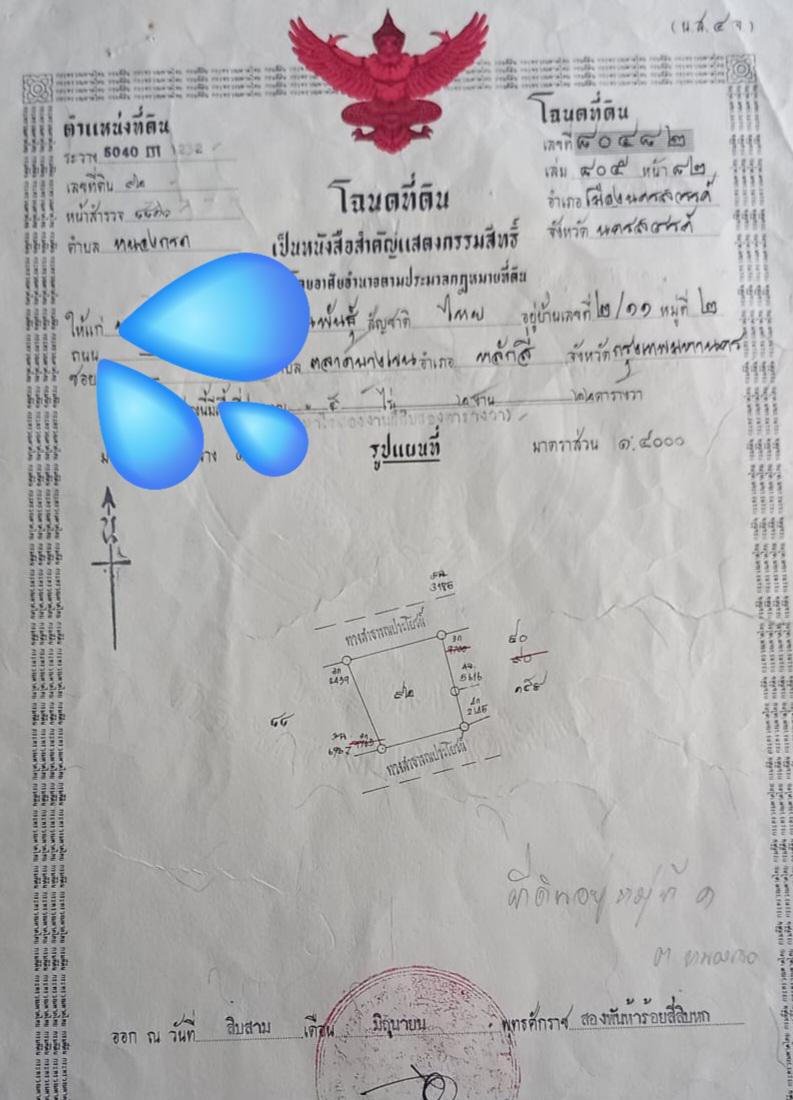 (น.ส.๔ จ)
ตำแหน่งที่ดิน
ระวาง 5040 III
เลขที่ดิน ๙๒
หน้าสำรวจ
ตำบล หนองกรด
โฉนดที่ดิน
เลขที่ ๘๐๔๘๒
เล่ม ๘๐๕ หน้า ๘๒
อำเภอ เมืองนครสวรรค์
จังหวัด นครสวรรค์
โฉนดที่ดิน
เป็นหนังสือสำคัญแสดงกรรมสิทธิ์
โดยอาศัยอำนาจตามประมวลกฎหมายที่ดิน
ให้แก่ พันธุ์ สัญชาติ ไทย อยู่บ้านเลขที่ ๒/๑๑ หมู่ที่ ๒
ถนน ตลาดบางเขน อำเภอ หลักสี่ จังหวัด กรุงเทพมหานคร
ซอย
ไร่ งาน ๒๒ ตารางวา
รูปแผนที่
มาตราส่วน ๑:๔๐๐๐
น
3186
ทางสาธารณประโยชน์
๕๐
5616
๙๒
๑๕๕
๔๔
ทางสาธารณประโยชน์
ที่ดินอยู่ หมู่ที่ ๑
ออก ณ วันที่ สิบสาม เดือน มิถุนายน พุทธศักราช สองพันห้าร้อยสี่สิบหก